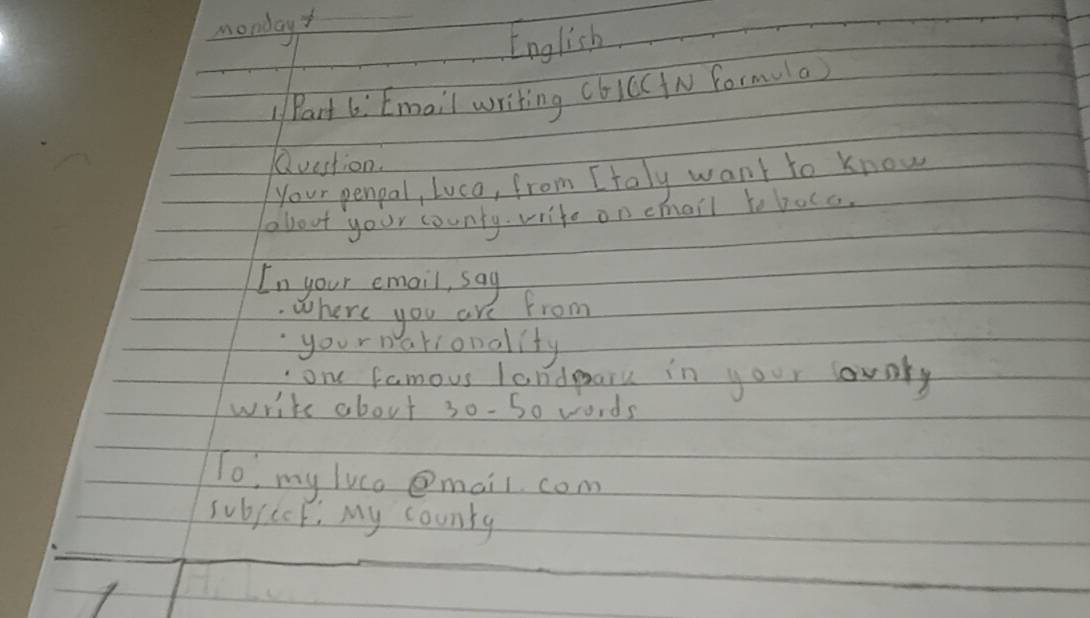 Monday
English
1/Part 6: Email writing (GICCIN formula)
Question:
your penpal, Luca, from Italy want to know
about your county. write on email to Luca.
In your email, say
. where you are from
. your nationality
. one famous landmark in your county
write about 30-50 words
To: my luca @mail.com
subject: My county
Hi Lu